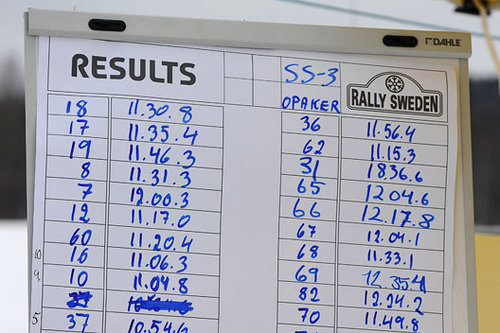 DAHLE
RESULTS
SS-3
OPAKER
RALLY SWEDEN
18 11.30.8
17 11.35.4
19 11.46.3
8 11.31.3
7 12.00.3
12 11.17.0
60 11.20.4
10 16 11.06.3
9. 10 11.09.8
5 37 10.54.6
36 11.56.4
62 11.15.3
31 1836.6
65 1204.6
66 12.17.8
67 12.04.1
68 11.33.1
69 12.35.4
82 12.24.2
70 11.49.8